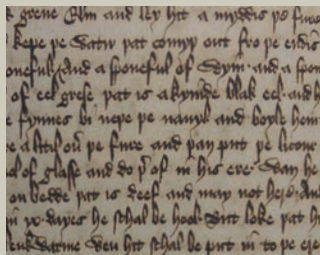 grene Elm and ley hit a myddis þe fuyre
kepe þe Watir þat comyþ out fro þe endis
oneful and a sponeful of Wyn and a spon
of eel grese þat is a kynde blak eel and
fynnes bi neþe þe nauyl and boyle hem
a litil ouer þe fuyre and þan put þe licour
of glasse and do þer of in his ere Wan he
on bedde þat is deef and may not here And
in dayes he schal be hool But loke þat h
leuk Warme Wen hit schal be put in to þe ere